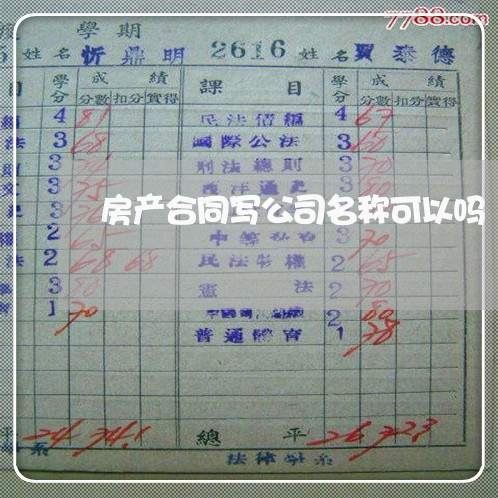 7788.com
學期
姓名 忻鼎明 2616 姓名 賈泰德
目 學分 成績 課目 學分 成績
分數 扣分 實得 分數 扣分 實得
4 81 民法債編 4 67
法 3 68 國際公法 3 60
3 刑法總則 3 70
文 3 75 西洋通史 3 80
房产合同写公司名称可以吗
2 65 3 70
法 2 68 68 民法物權 2 65
3 80 憲法 2 70
育 1 70 2 80
普通體育 1 78
平 24 74.1 總平 26 72.3
系 法律學系